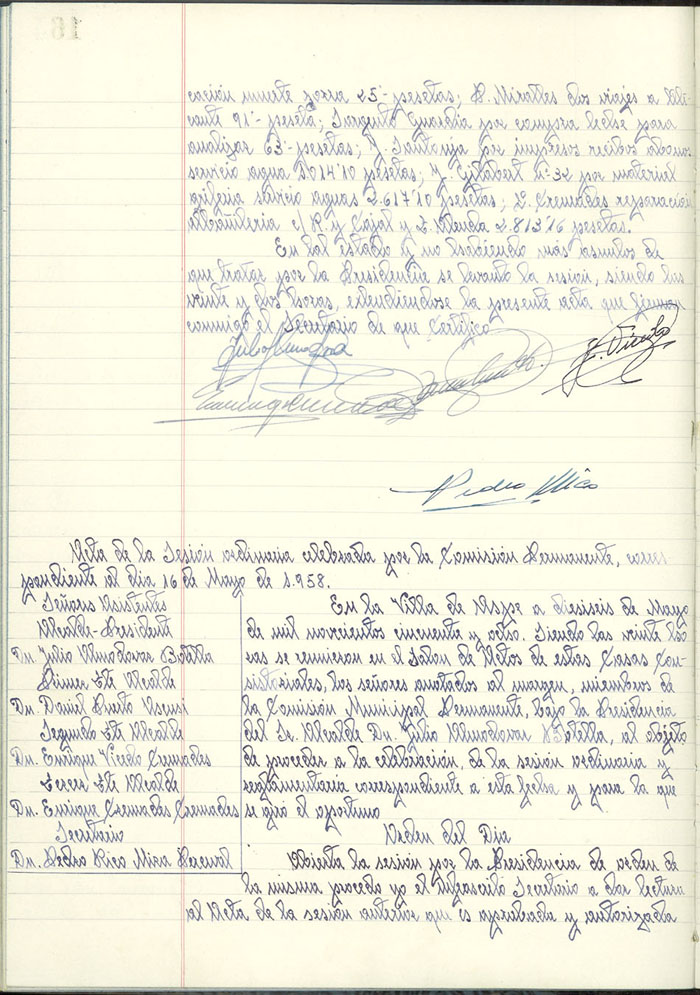 cación muerte zorra 25'- pesetas; D. Miralles dos viajes a Ali-
cante 91'- peseta; Sargento Guardia por compra leche para
analizar 63'- pesetas; J. Santonja por impresos recibos abonos
servicio agua 1.014'10 pesetas; J. Gilabert nº 32 por material
servicio aguas 2.617'10 pesetas; E. Cremades reparación
albañileria c/ R. y Cajal y 2.813'16 pesetas.
En tal estado y no habiendo más asuntos de
que tratar por la Presidencia se levanto la sesión, siendo las
veinte y dos horas, extendiendose la presente acta que firman
conmigo el Secretario de que Certifico
E. Vicedo
Pedro Mico
Acta de la Sesión ordinaria celebrada por la Comisión Permanente, corres
pondiente al dia 16 de Mayo de 1.958.
Señores Asistentes
Alcalde-President
Dn. Julio Almodovar Botella
Primer Tte Alcalde
Dn. Daniel
Segundo Tte Alcalde
Dn. Enrique Vicedo Cremades
Tercer Tte Alcalde
Dn. Enrique Cremades Cremades
Secretario
Dn. Pedro Rico Mira Perceval
En la Villa de Aspe a dieciseis de Mayo
de mil novecientos cincuenta y ocho. Siendo las veinte ho
ras se reunieron en el Salon de Actos de estas Casas Con-
sistoriales, los señores anotados al margen, miembros de
la Comisión Municipal Permanente, bajo la Presidencia
del Sr. Alcalde Dn. Julio Almodovar Botella, al objeto
de proceder a la celebración, de la sesión ordinaria y
reglamentaria correspondiente a esta fecha y para la que
se giró el oportuno
Orden del Dia
Abierta la sesión por la Presidencia de orden de
la misma procedo yo el infrascrito Secretario a dar lectura
al Acta de la sesión anterior que es aprobada y autorizada